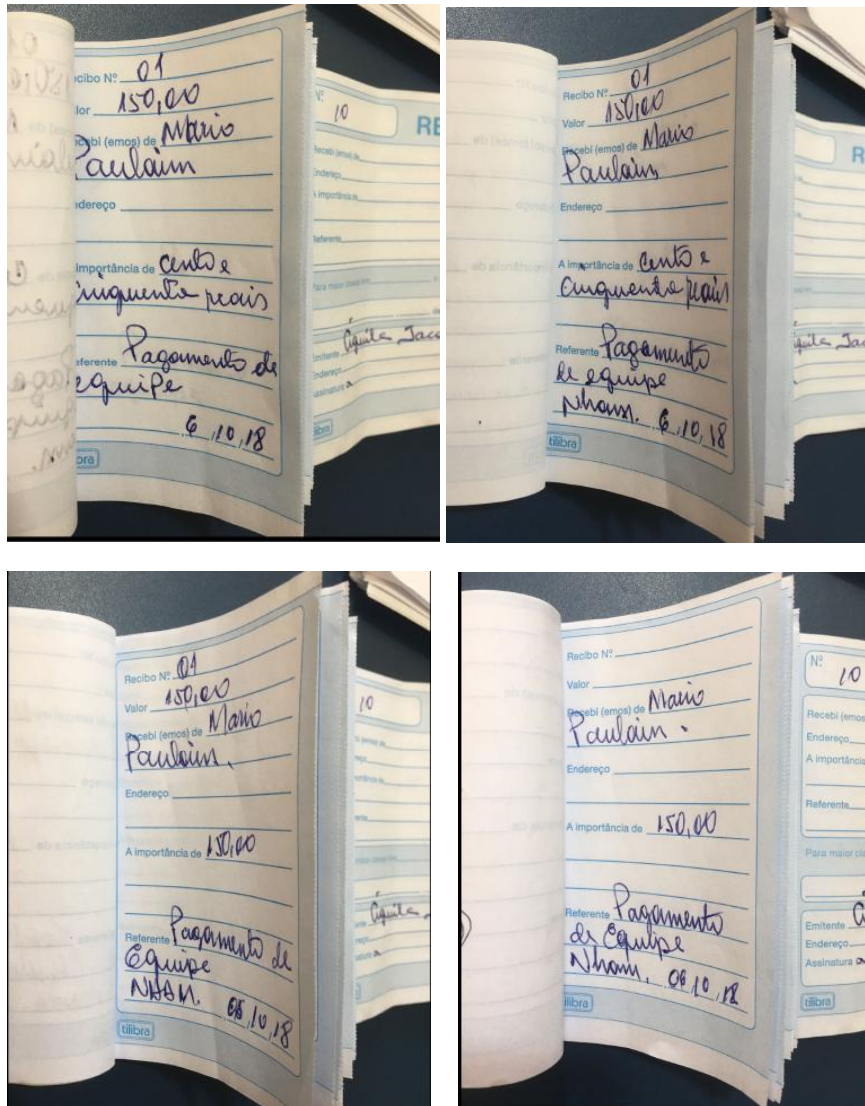 Recibo Nº 01
Valor 150,00
Recebi (emos) de Mario
Paulain
Endereço
A importância de cento e
cinquenta reais
Referente Pagamento de
equipe
6,10,18
Nº 10
RE
Recebi (emos) de
Endereço
A importância de
Referente
Emitente Aquila Jaco
Endereço
Assinatura a
tilibra
Recibo Nº 01
Valor 150,00
Recebi (emos) de Mario
Paulain
Endereço
A importância de Cento e
Cinquenta reais
Referente Pagamento
de equipe
Nham. 6,10,18
tilibra
Recibo Nº 01
Valor 150,00
Recebi (emos) de Mario
Paulain.
Endereço
A importância de 150,00
Referente Pagamento de
Equipe
NHAM. 06,10,18
tilibra
10
Recibo Nº
Valor
Recebi (emos) de Mario
Paulain.
Endereço
A importância de 150,00
Referente Pagamento
de Equipe
Nham. 06,10,18
tilibra
Nº 10
Recebi (emos
Endereço
A importância
Referente
Para maior cla
Emitente
Endereço
Assinatura a
tilibra